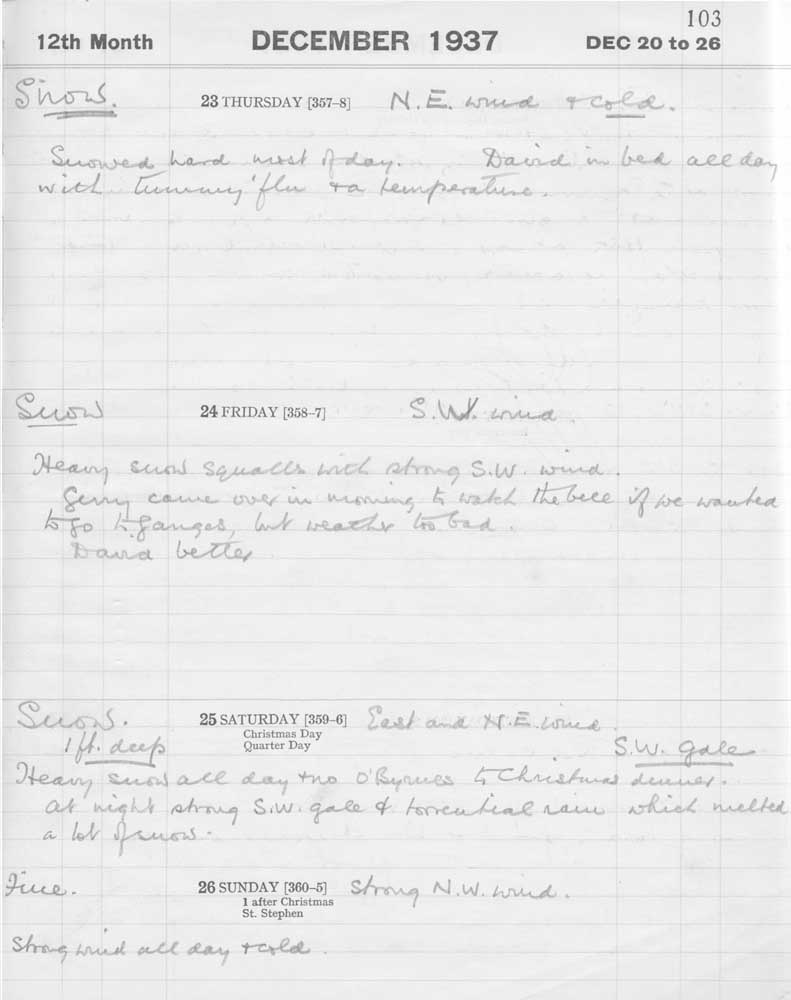 103
12th Month DECEMBER 1937 DEC 20 to 26
Snow. 23 THURSDAY [357–8] N.E. wind & cold.
Snowed hard most of day. David in bed all day
with tummy 'flu & a temperature.
Snow 24 FRIDAY [358–7] S.W. wind.
Heavy snow squalls with strong S.W. wind.
Gerry came over in morning to watch the bece if we wanted
to go to Ganges, but weather too bad.
David better
Snow. 25 SATURDAY [359–6] East and N.E. wind.
Christmas Day
1 ft. deep Quarter Day S.W. gale
Heavy snow all day & no O'Byrnes to Christmas dinner.
at night strong S.W. gale & torrential rain which melted
a lot of snow.
Fine. 26 SUNDAY [360–5] Strong N.W. wind.
1 after Christmas
St. Stephen
Strong wind all day & cold.